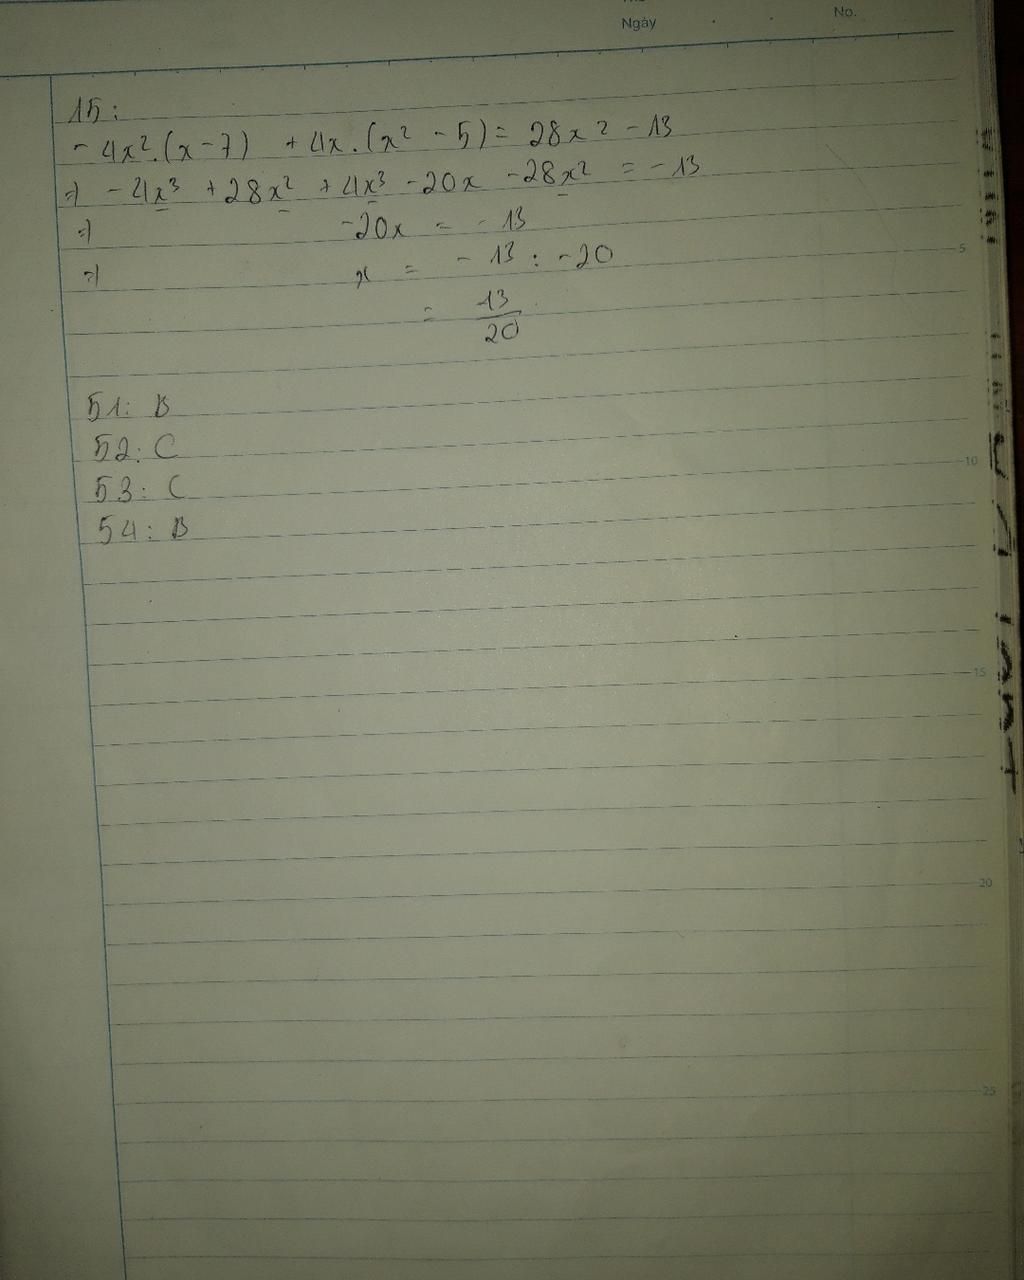 Ngày
No.
15:
- 4x².(x-7) + 4x.(x² - 5) = 28x² - 13
=) - 4x³ + 28x² + 4x³ - 20x - 28x² = - 13
=) -20x = - 13
=) x = - 13 : -20
= 13/20
51: B
52: C
53: C
54: B
5
10
15
20
25